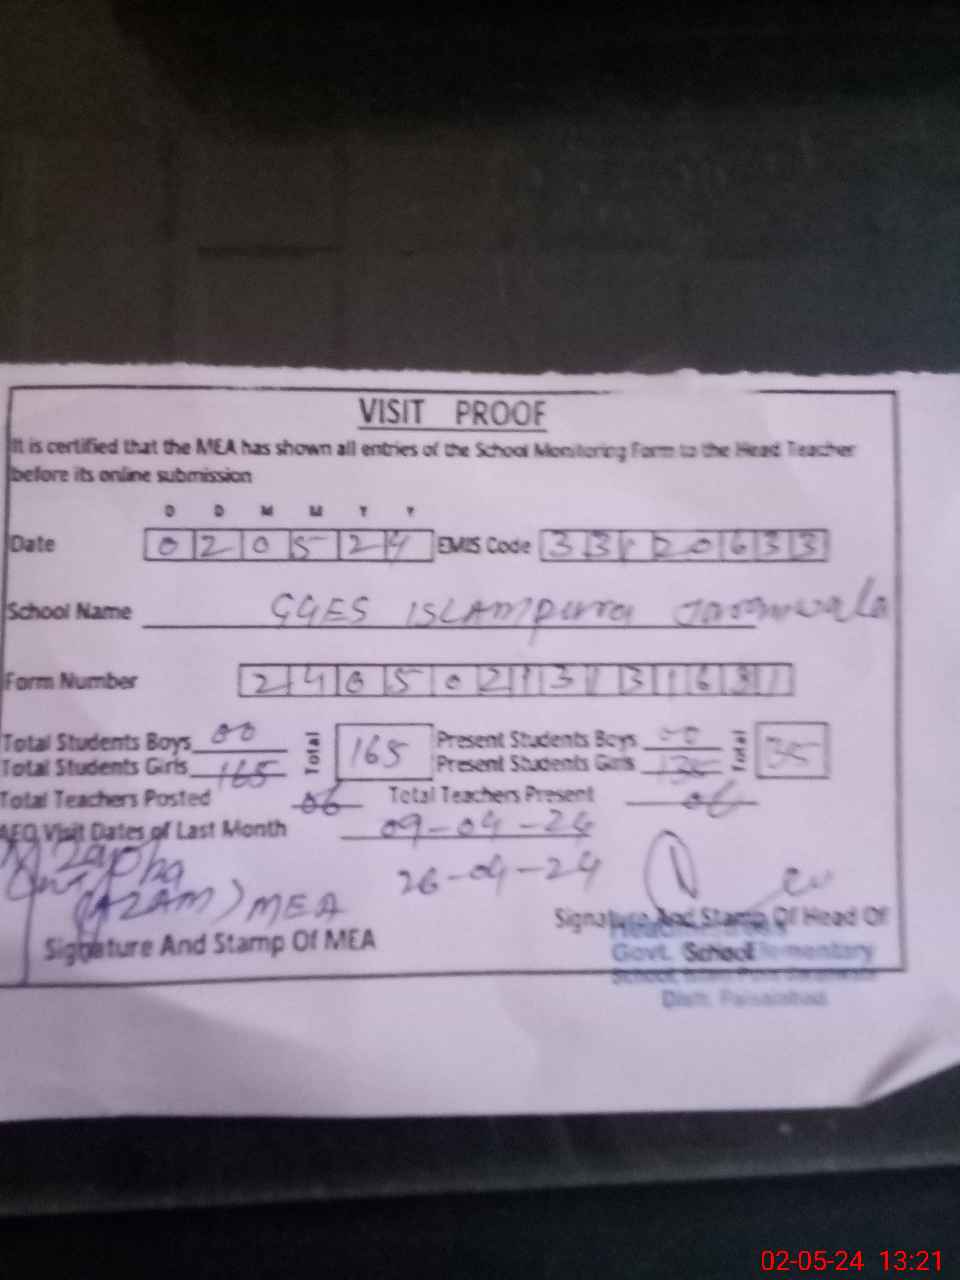 VISIT PROOF
It is certified that the MEA has shown all entries of the School Monitoring Form to the Head Teacher
before its online submission
D D M M Y Y
Date 0 2 0 5 2 4 EMIS Code 3 3 1 2 0 6 3 3
School Name GGES ISLAMpura Jaranwala
Form Number 2 4 0 5 0 2 1 3 1 3 1 6 3 1
Total Students Boys 00 Total 165 Present Students Boys 00 Total 135
Total Students Girls 165 Present Students Girls 135
Total Teachers Posted 06 Total Teachers Present 06
AEO Visit Dates of Last Month 09-04-24
26-04-24
(AZAM) MEA
Signature And Stamp Of MEA
Signature And Stamp Of Head Of
School
Govt. Elementary
Distt. Faisalabad
02-05-24 13:21